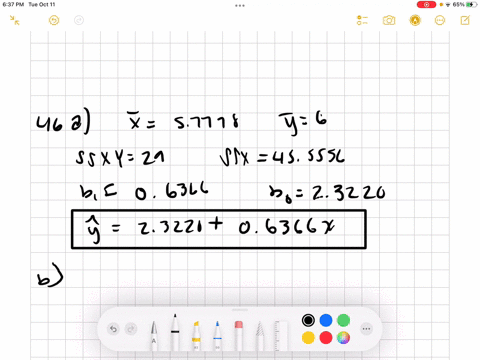 6:37 PM Tue Oct 11
65%
46 a) x̄ = 5.7778 ȳ = 6
SSXY = 29 SSX = 45.5556
b₁ = 0.6366 b₀ = 2.3220
ŷ = 2.3220 + 0.6366x
b)